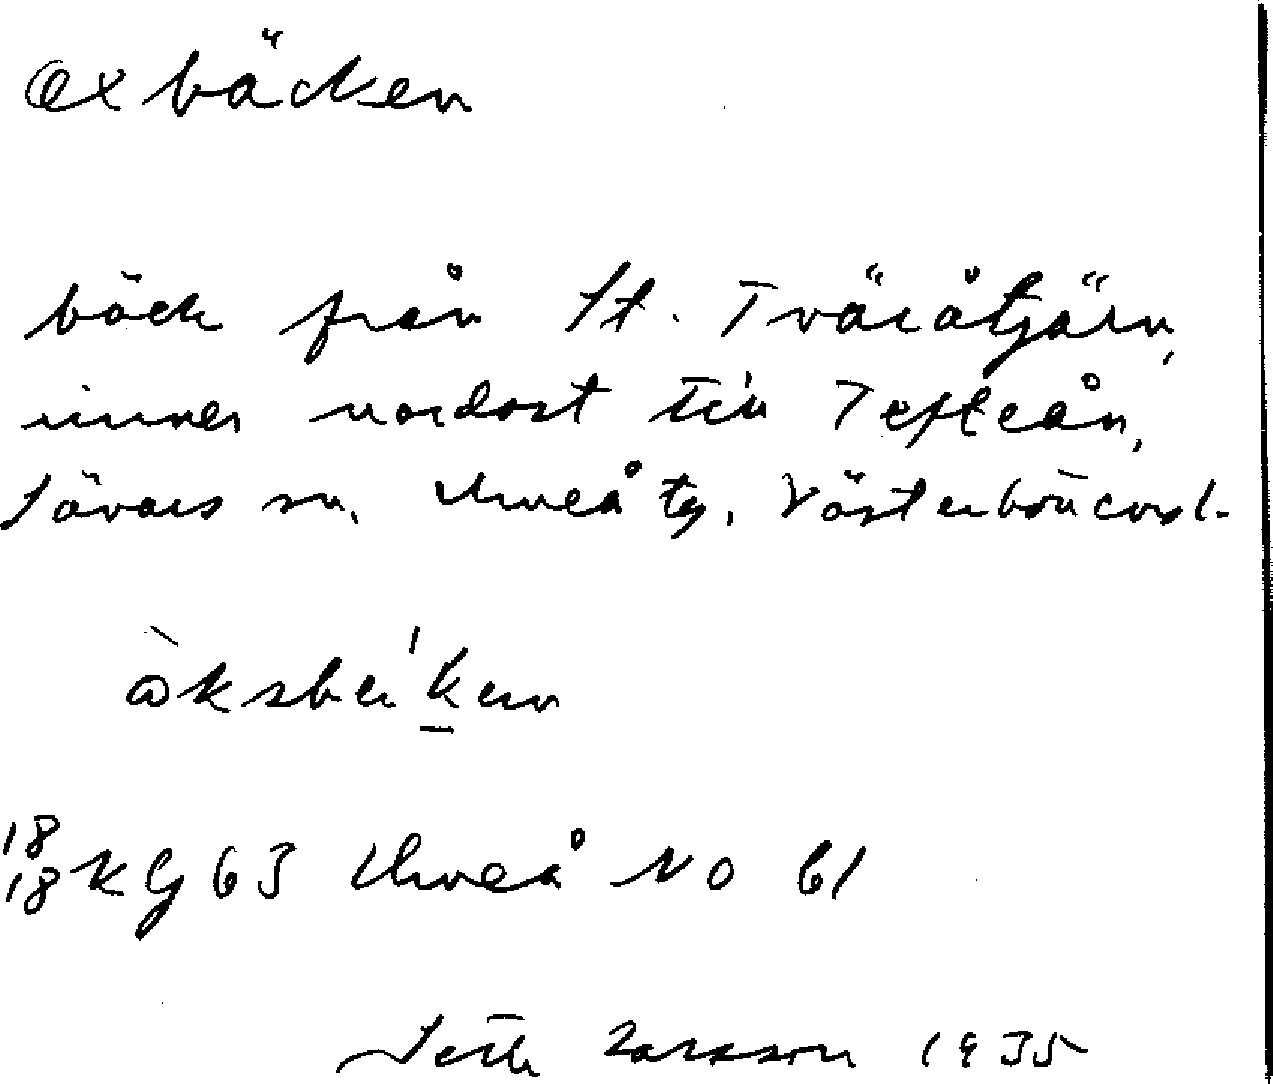 Oxbäcken
bäck från St. Tväråtjärn,
rinner nordost till Tefteån,
Sävars sn, Umeå tg, Västerbotten
òksbe'ken
18 18 KG 63 Umeå NO 61
Seth Larsson 1935